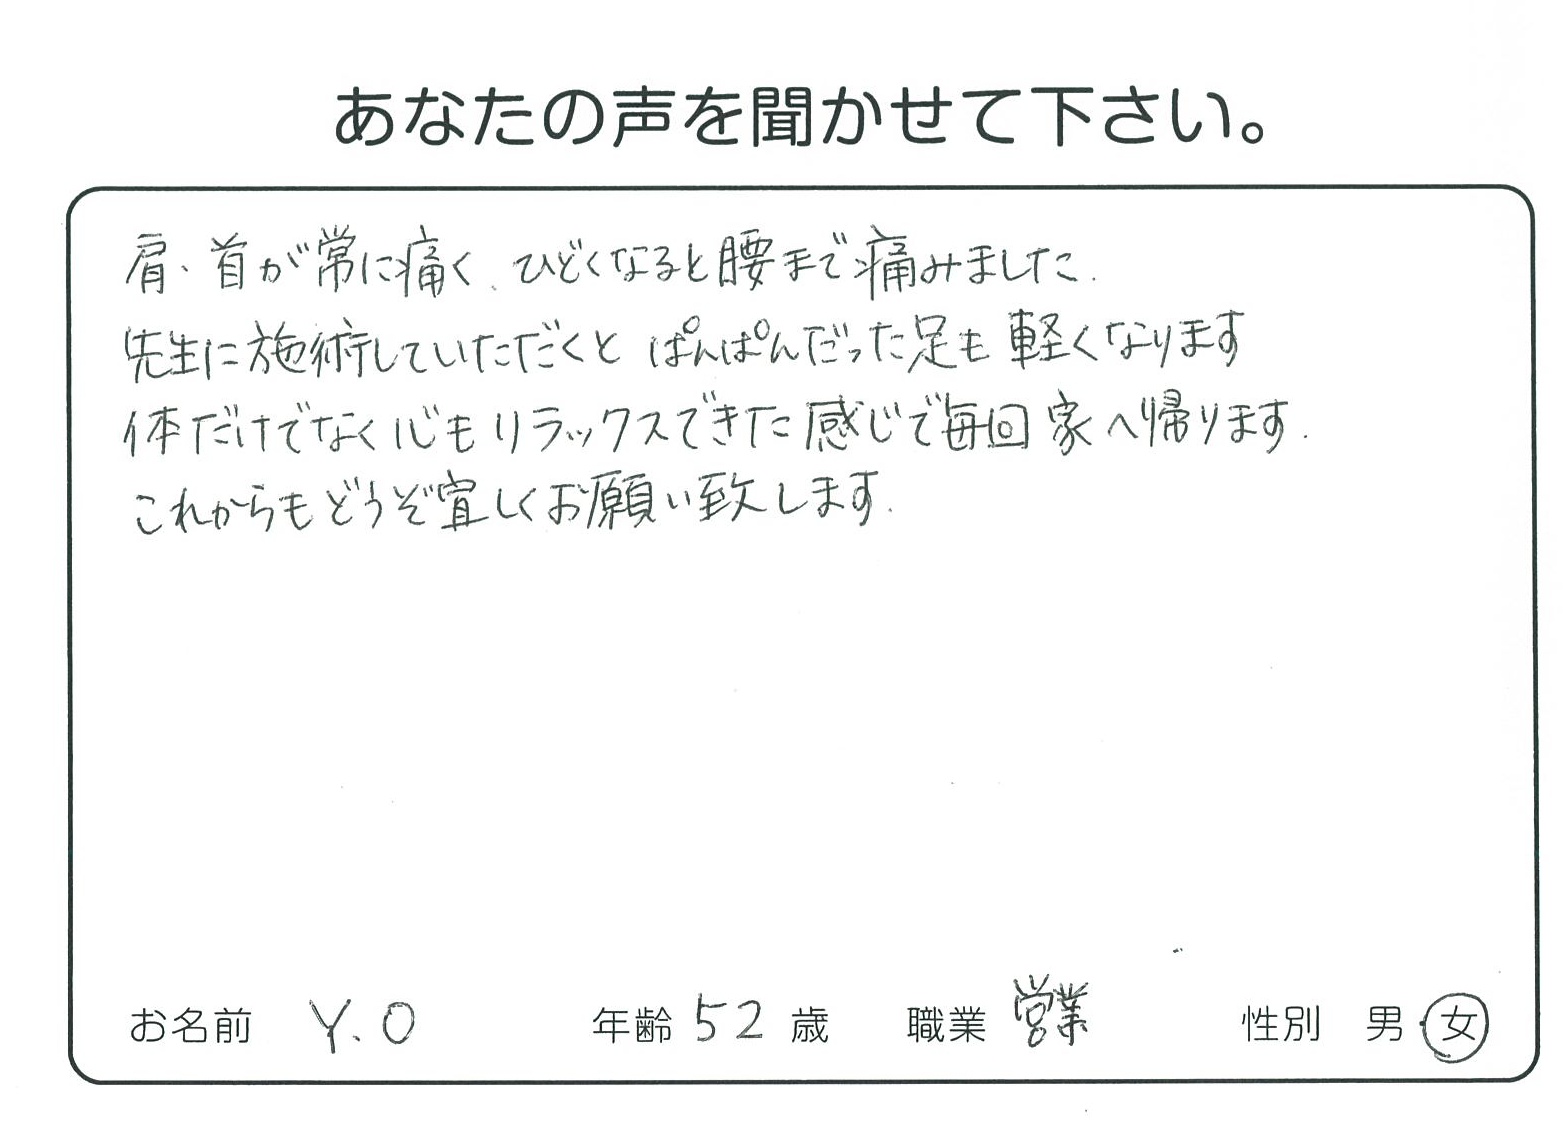 あなたの声を聞かせて下さい。
肩、首が常に痛く、ひどくなると腰まで痛みました.
先生に施術していただくと ぱんぱんだった足も 軽くなります
体だけでなく心もリラックスできた感じで毎回 家へ帰ります.
これからもどうぞ宜しくお願い致します.
お名前 Y.O 年齢 52 歳 職業 営業 性別 男・女